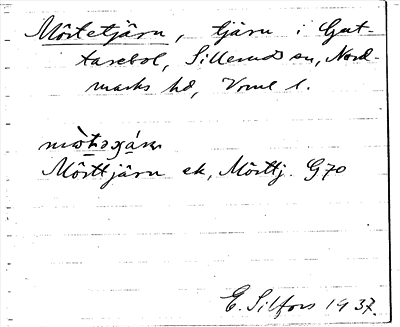 Mörtetjärn, tjärn i Gut-
tarebol, Sillerud sn, Nord-
marks hd, Vrml l.
Mörttjärn ek, Mörttj. G70
E. Silfors 1937.